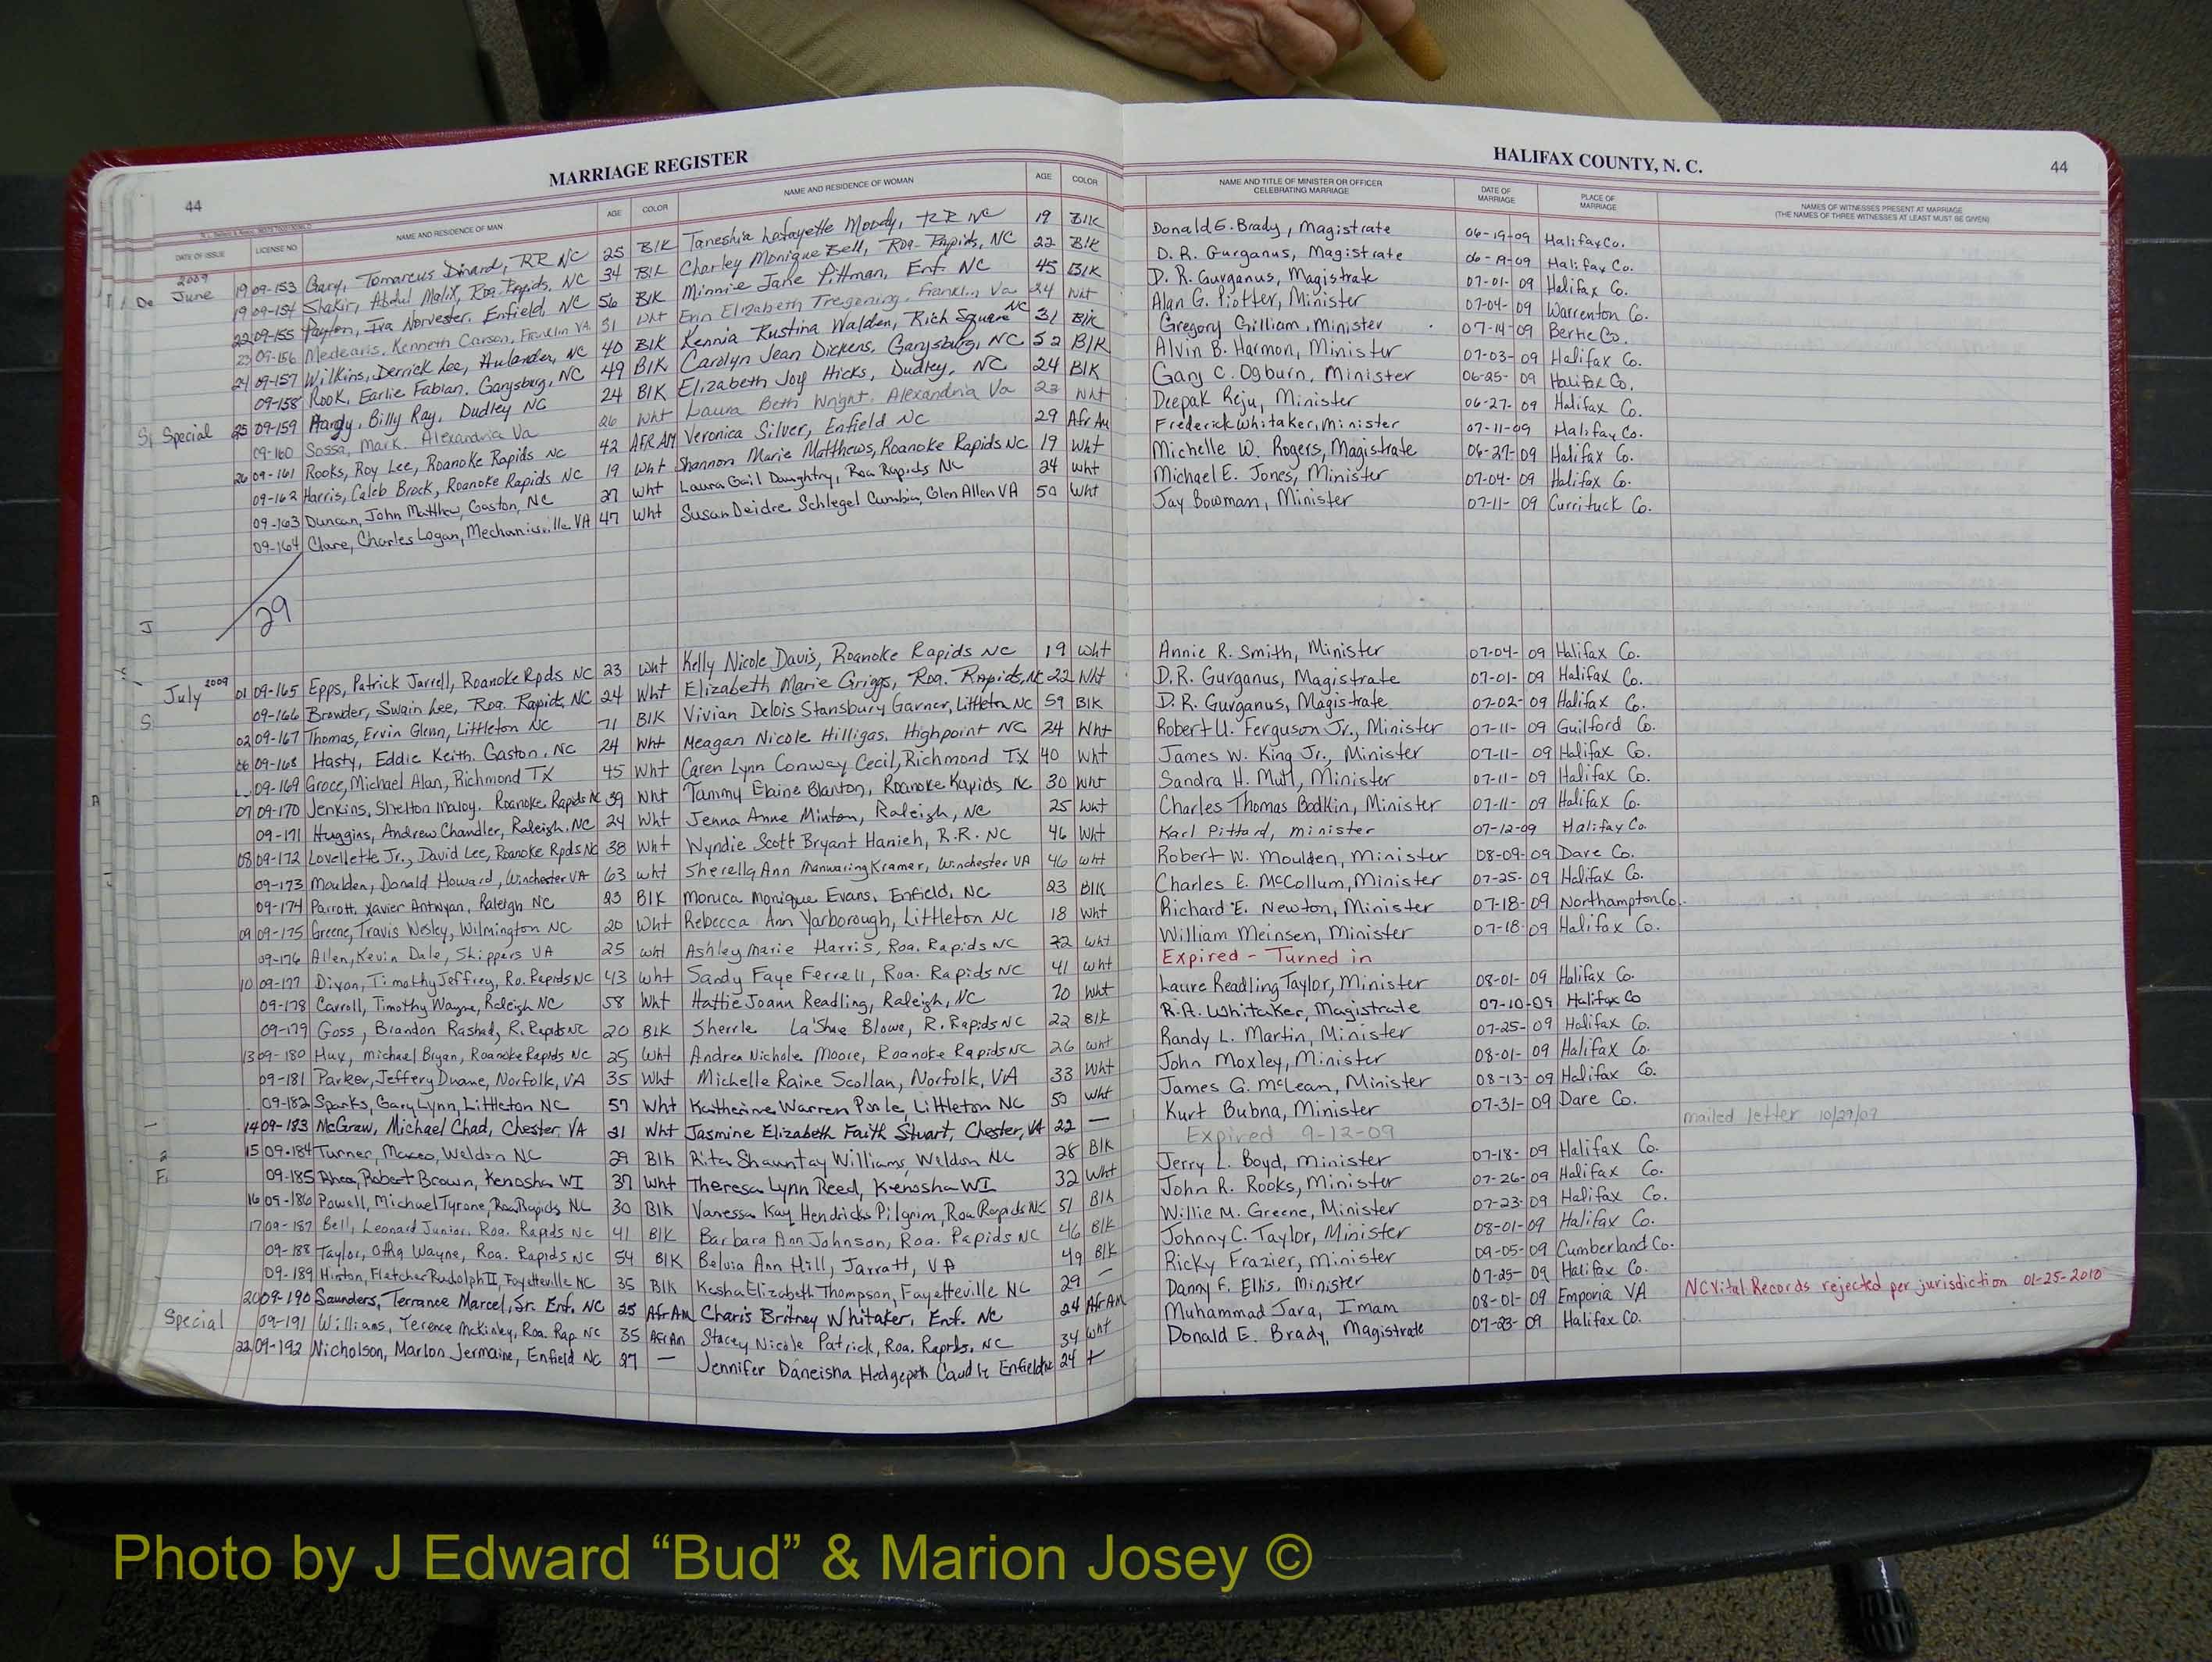 MARRIAGE REGISTER
HALIFAX COUNTY, N. C.
44
44
DATE OF ISSUE LICENSE NO NAME AND RESIDENCE OF MAN AGE COLOR NAME AND RESIDENCE OF WOMAN AGE COLOR NAME AND TITLE OF MINISTER OR OFFICER CELEBRATING MARRIAGE DATE OF MARRIAGE PLACE OF MARRIAGE NAMES OF WITNESSES PRESENT AT MARRIAGE (THE NAMES OF THREE WITNESSES AT LEAST MUST BE GIVEN)
2009
June 19 09-153 Gary, Tomarcus Dinard, RR NC 25 Blk Taneshia Lafayette Moody, RR NC 19 Blk Donald E. Brady, Magistrate 06-19-09 Halifax Co.
19 09-154 Shakir, Abdul Malik, Roa. Rapids, NC 34 Blk Charley Monique Bell, Roa. Rapids, NC 22 Blk D. R. Gurganus, Magistrate 06-19-09 Halifax Co.
22 09-155 Payton, Ira Norvester, Enfield, NC 56 Blk Minnie Jane Pittman, Enf. NC 45 Blk D. R. Gurganus, Magistrate 07-01-09 Halifax Co.
23 09-156 Medearis, Kenneth Carson, Franklin VA 31 Wht Erin Elizabeth Franklin Va 24 Wht Alan G. Minister 07-04-09 Warrenton Co.
24 09-157 Wilkins, Derrick Lee, Aulander, NC 40 Blk Kennia Rustina Walden, Rich Square NC 31 Blk Gregory Gilliam, Minister 07-14-09 Bertie Co.
09-158 Rook, Earlie Fabian, Garysburg, NC 49 Blk Carolyn Jean Dickens, Garysburg, NC 52 Blk Alvin B. Harmon, Minister 07-03-09 Halifax Co.
Special 25 09-159 Hardy, Billy Ray, Dudley NC 24 Blk Elizabeth Joy Hicks, Dudley, NC 24 Blk Gary C. Ogburn, Minister 06-25-09 Halifax Co.
09-160 Sossa, Mark. Alexandria Va 26 Wht Laura Beth Wright. Alexandria Va 23 Wht Deepak Reju, Minister 06-27-09 Halifax Co.
26 09-161 Rooks, Roy Lee, Roanoke Rapids NC 42 AFR AM Veronica Silver, Enfield NC 29 Afr Am Frederick Whitaker, Minister 07-11-09 Halifax Co.
09-162 Harris, Caleb Brock, Roanoke Rapids NC 19 Wht Shannon Marie Matthews, Roanoke Rapids NC 19 Wht Michelle W. Rogers, Magistrate 06-27-09 Halifax Co.
09-163 Duncan, John Matthew, Gaston, NC 27 Wht Laura Gail Daughtry, Roa. Rapids NC 24 Wht Michael E. Jones, Minister 07-04-09 Halifax Co.
09-164 Clare, Charles Logan, Mechanicsville VA 47 Wht Susan Deidre Schlegel Cumbia, Glen Allen VA 50 Wht Jay Bowman, Minister 07-11-09 Currituck Co.
29
July 2009 01 09-165 Epps, Patrick Jarrell, Roanoke Rpds NC 23 Wht Kelly Nicole Davis, Roanoke Rapids NC 19 Wht Annie R. Smith, Minister 07-04-09 Halifax Co.
09-166 Browder, Swain Lee, Roa. Rapids, NC 24 Wht Elizabeth Marie Griggs, Roa. Rapids, NC 22 Wht D. R. Gurganus, Magistrate 07-01-09 Halifax Co.
02 09-167 Thomas, Ervin Glenn, Littleton NC 71 Blk Vivian Delois Stansbury Garner, Littleton NC 59 Blk D. R. Gurganus, Magistrate 07-02-09 Halifax Co.
06 09-168 Hasty, Eddie Keith. Gaston, NC 24 Wht Meagan Nicole Hilligas. Highpoint NC 24 Wht Robert U. Ferguson Jr., Minister 07-11-09 Guilford Co.
09-169 Groce, Michael Alan, Richmond TX 45 Wht Caren Lynn Conway Cecil, Richmond TX 40 Wht James W. King Jr., Minister 07-11-09 Halifax Co.
07 09-170 Jenkins, Shelton Maloy. Roanoke Rapids NC 39 Wht Tammy Elaine Blanton, Roanoke Rapids NC 30 Wht Sandra H. Minister 07-11-09 Halifax Co.
09-171 Huggins, Andrew Chandler, Raleigh, NC 24 Wht Jenna Anne Minton, Raleigh, NC 25 Wht Charles Thomas Bodkin, Minister 07-11-09 Halifax Co.
08 09-172 Lovellette Jr., David Lee, Roanoke Rpds NC 38 Wht Wyndie Scott Bryant Hanieh, R.R. NC 46 Wht Karl Pittard, minister 07-12-09 Halifax Co.
09-173 Moulden, Donald Howard, Winchester VA 63 Wht Sherella Ann Manwaring Kramer, Winchester VA 46 Wht Robert W. Moulden, Minister 08-09-09 Dare Co.
09-174 Parrott, Xavier Antwyan, Raleigh NC 23 Blk Monica Monique Evans, Enfield, NC 23 Blk Charles E. McCollum, Minister 07-25-09 Halifax Co.
09 09-175 Greene, Travis Wesley, Wilmington NC 20 Wht Rebecca Ann Yarborough, Littleton NC 18 Wht Richard E. Newton, Minister 07-18-09 Northampton Co.
09-176 Allen, Kevin Dale, Skippers VA 25 Wht Ashley Marie Harris, Roa. Rapids NC 22 Wht William Meinsen, Minister 07-18-09 Halifax Co.
10 09-177 Dixon, Timothy Jeffrey, Ro. Rapids NC 43 Wht Sandy Faye Ferrell, Roa. Rapids NC 41 Wht Expired - Turned in
09-178 Carroll, Timothy Wayne, Raleigh NC 58 Wht Hattie Joann Readling, Raleigh, NC 70 Wht Laure Readling Taylor, Minister 08-01-09 Halifax Co.
09-179 Goss, Brandon Rashad, R. Rapids NC 20 Blk Sherrle La'Shae Blowe, R. Rapids NC 22 Blk R.A. Whitaker, Magistrate 07-10-09 Halifax Co
13 09-180 Hux, Michael Bryan, Roanoke Rapids NC 25 Wht Andrea Nichole Moore, Roanoke Rapids NC 26 Wht Randy L. Martin, Minister 07-25-09 Halifax Co.
09-181 Parker, Jeffery Duane, Norfolk, VA 35 Wht Michelle Raine Scollan, Norfolk, VA 33 Wht John Moxley, Minister 08-01-09 Halifax Co.
09-182 Sparks, Gary Lynn, Littleton NC 57 Wht Katherine Warren Poole, Littleton NC 50 Wht James G. McLean, Minister 08-13-09 Halifax Co.
14 09-183 McGraw, Michael Chad, Chester, VA 21 Wht Jasmine Elizabeth Faith Stuart, Chester, VA 22 — Kurt Bubna, Minister 07-31-09 Dare Co.
15 09-184 Turner, Maceo, Weldon NC 29 Blk Rita Shauntay Williams, Weldon NC 28 Blk Expired 9-12-09 mailed letter 10/29/09
09-185 Rhea, Robert Brown, Kenosha WI 37 Wht Theresa Lynn Reed, Kenosha WI 32 Wht Jerry L. Boyd, Minister 07-18-09 Halifax Co.
16 09-186 Powell, Michael Tyrone, Roa Rapids NC 30 Blk Vanessa Kay Hendricks Pilgrim, Roa Rapids NC 51 Blk John R. Rooks, Minister 07-26-09 Halifax Co.
17 09-187 Bell, Leonard Junior, Roa. Rapids NC 41 Blk Barbara Ann Johnson, Roa. Rapids NC 46 Blk Willie M. Greene, Minister 07-23-09 Halifax Co.
09-188 Taylor, Otha Wayne, Roa. Rapids NC 54 Blk Belvia Ann Hill, Jarratt, VA 49 Blk Johnny C. Taylor, Minister 08-01-09 Halifax Co.
09-189 Hinton, Fletcher Rudolph II, Fayetteville NC 35 Blk Kesha Elizabeth Thompson, Fayetteville NC 29 — Ricky Frazier, Minister 09-05-09 Cumberland Co.
20 09-190 Saunders, Terrance Marcel, Sr. Enf. NC 25 Afr Am Charis Britney Whitaker, Enf. NC 24 Afr Am Danny F. Ellis, Minister 07-25-09 Halifax Co.
Special 09-191 Williams, Terence McKinley, Roa. Rap. NC 35 Afr Am Stacey Nicole Patrick, Roa. Rapids, NC 34 Wht Muhammad Jara, Imam 08-01-09 Emporia VA NC Vital Records rejected per jurisdiction 01-25-2010
22 09-192 Nicholson, Marlon Jermaine, Enfield NC 27 — Jennifer Daneisha Hedgepeth Caudle Enfield NC 24 Donald E. Brady, Magistrate 07-23-09 Halifax Co.
Photo by J Edward “Bud” & Marion Josey ©